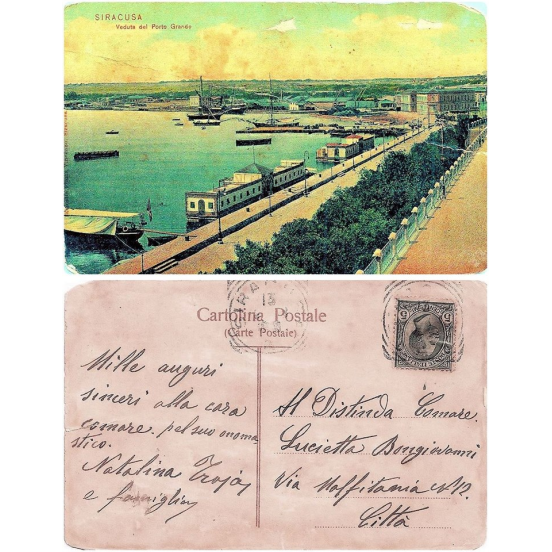 SIRACUSA
Veduta del Porto Grande
Cartolina Postale
(Carte Postale)
13
Mille auguri
sinceri alla cara
comare. pel suo onoma-
stico.
Natalina Troja,
e famiglia
Al Distinda Comare.
Lucietta Bongiovanni
Via Maffitania N 12.
Città